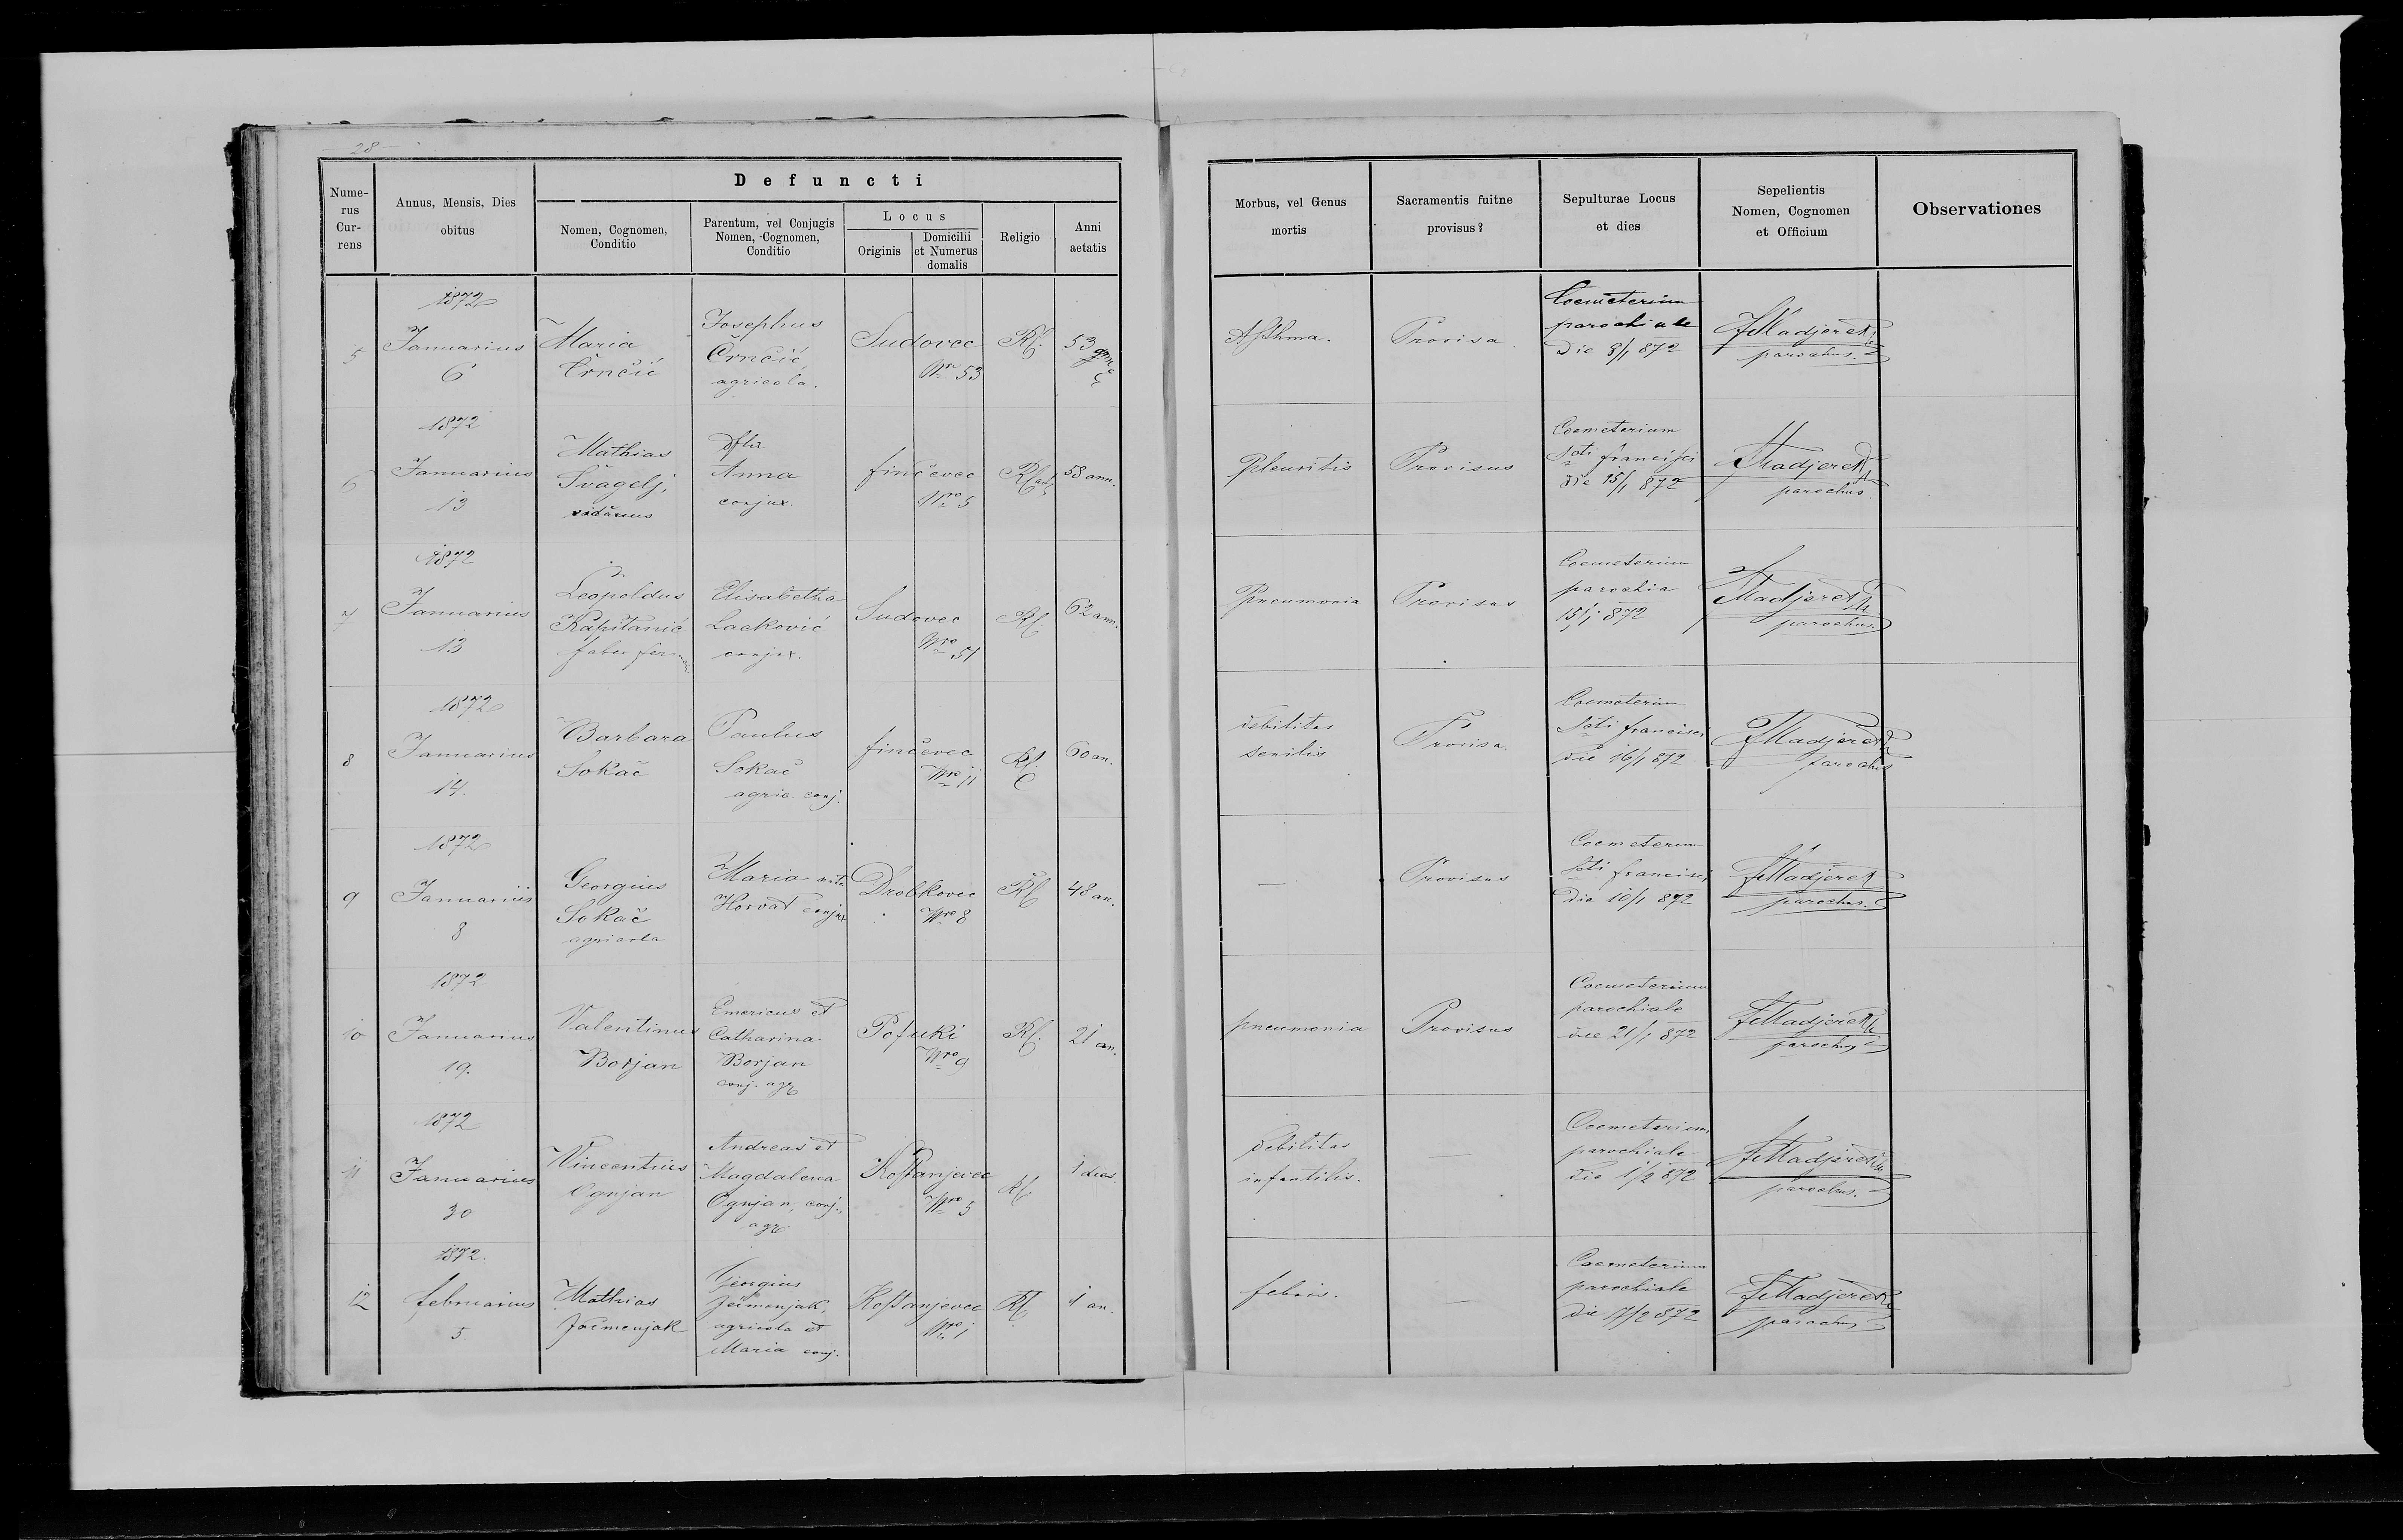 - 28 -
Defuncti
Nume-
rus
Cur-
rens
Annus, Mensis, Dies
obitus
Nomen, Cognomen,
Conditio
Parentum, vel Conjugis
Nomen, Cognomen,
Conditio
Locus
Originis
Domicilii
et Numerus
domalis
Religio
Anni
aetatis
Morbus, vel Genus
mortis
Sacramentis fuitne
provisus?
Sepulturae Locus
et dies
Sepelientis
Nomen, Cognomen
et Officium
Observationes
5
1872
Januarius
6
Maria
Črnčić
Josephus
Črnčić,
agricola.
Sudovec
Nro 53
RC.
53
Asthma.
Provisa.
Coemeterium
parochiale
Die 8/1 872
FMadjerek
parochus.
6
1872
Januarius
13
Mathias
Švagelj,
viduus
Anna
conjux.
Finčevec
Nro 5
58 ann.
Pleuritis
Provisus
Coemeterium
Scti Francisci
die 15/1 872
FMadjerek
parochus.
7
1872
Januarius
13
Leopoldus
Kapitanić
faber
Elisabetha
Lacković
conjux.
Sudovec
Nro 51
RC
62 ann.
Pneumonia
Provisus
Coemeterium
parochia
15/1 872
FMadjerek
parochus.
8
1872
Januarius
14.
Barbara
Sokač
Paulus
Sokač
agric. conj.
Finčevec
Nro 11
RC
60 an.
Debilitas
senilis
Provisa.
Coemeterium
Scti Francisci
Die 16/1 872
FMadjerek
parochus
9
1872
Januarius
8
Georgius
Sokač
agricola
Maria
Horvat conjux
Drobkovec
Nro 8
RC
48 an.
—
Provisus
Coemeterium
Scti Francisci
Die 10/1 872
FMadjerek
parochus.
10
1872
Januarius
19.
Valentinus
Borjan
Emericus et
Catharina
Borjan
conj. agr
Pofuki
Nro 9
RC.
21 an.
pneumonia
Provisus
Coemeterium
parochiale
die 21/1 872
FMadjerek
parochus
11
1872
Januarius
30
Vincentius
Ognjan
Andreas et
Magdalena
Ognjan, conj.,
agr.
Kostanjevec
Nro 5
RC.
1 dies.
Debilitas
infantilis.
—
Coemeterium
parochiale
Die 1/2 872
FMadjerek
parochus.
12
1872.
Februarius
5.
Mathias
Ječmenjak
Georgius
Ječmenjak,
agricola et
Maria conj.
Kostanjevec
Nro 1
RC.
1 an.
Febris.
—
Coemeterium
parochiale
Die 7/2 872
FMadjerek
parochus